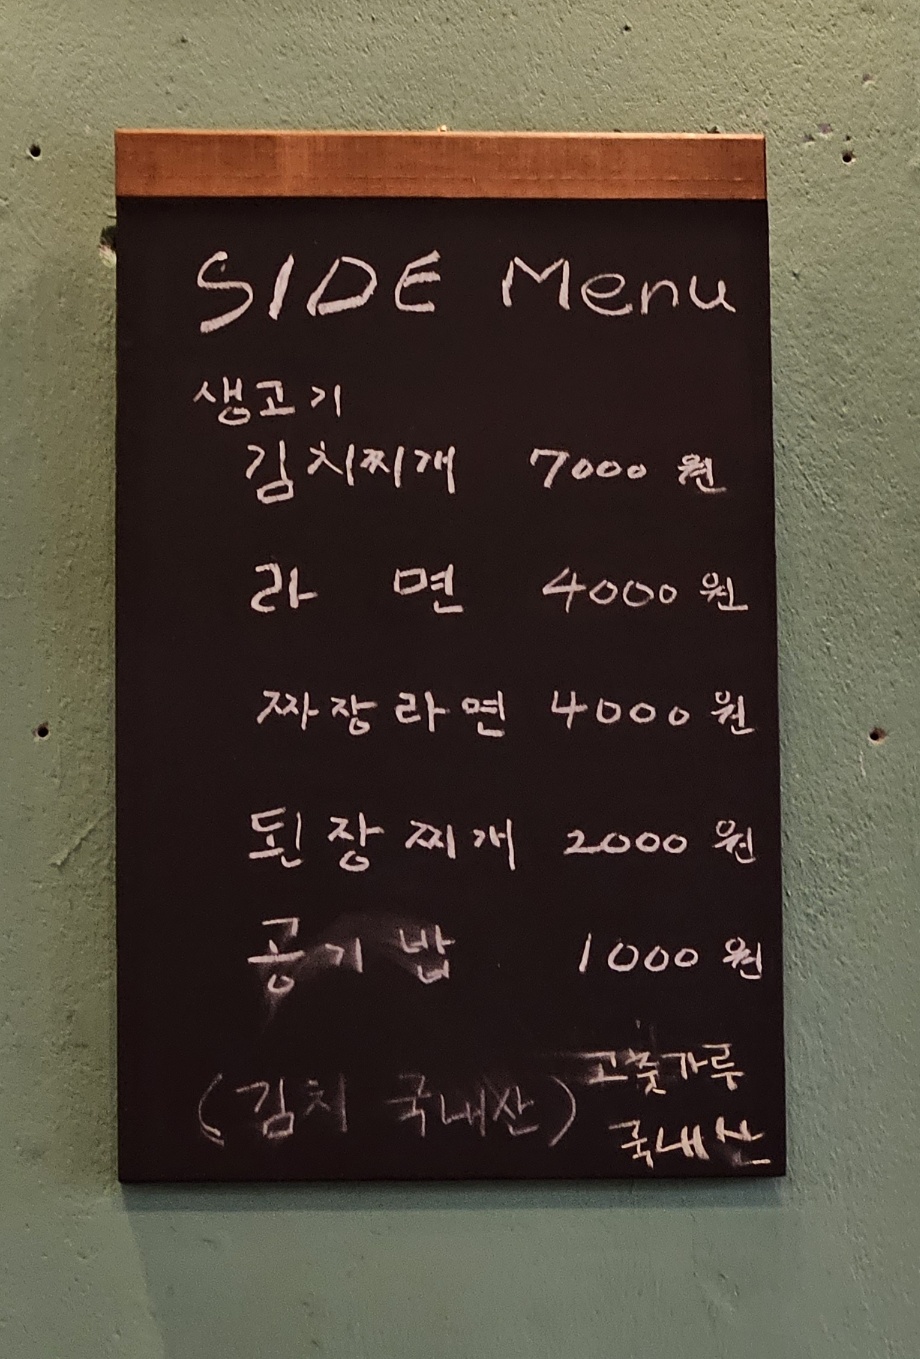 SIDE Menu
생고기
김치찌개 7000원
라 면 4000원
짜장라면 4000원
된장찌개 2000원
공기밥 1000원
(김치 국내산)
고춧가루
국내산